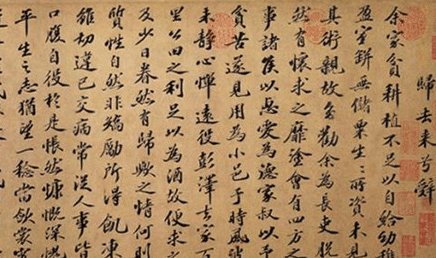 歸去來兮辭
余家貧耕植不足以自給幼稚
盈室缾無儲粟生生所資未見
其術親故多勸余為長吏脫
然有懷求之靡塗會有四方之
事諸侯以惠愛為德家叔以予
貧苦遂見用為小邑于時風波
未静心憚遠役彭澤去家百
里公田之利足以為酒故便求之
及少日眷然有歸歟之情何則
質性自然非矯勵所得飢凍
雖切違己交病常從人事皆
口腹自役於是悵然慷慨深愧
平生之志猶望一稔當斂裳宵